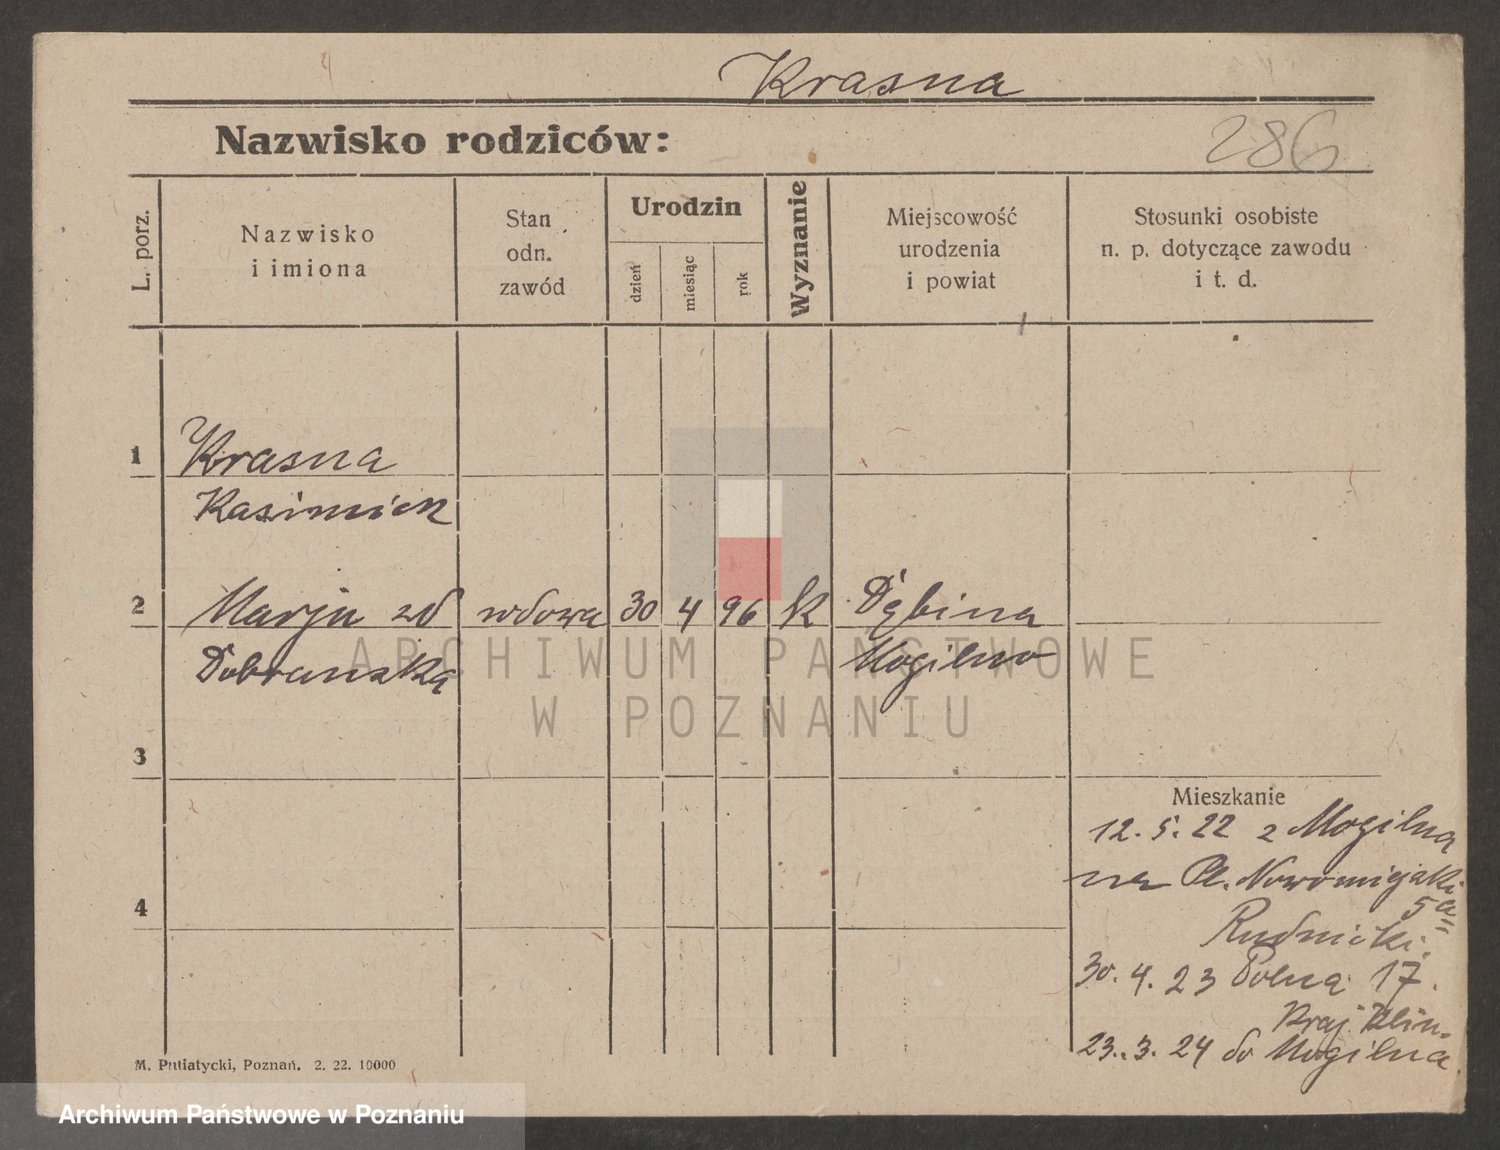 Krasna
Nazwisko rodziców:
286
L. porz.
Nazwisko
i imiona
Stan
odn.
zawód
Urodzin
dzień
miesiąc
rok
Wyznanie
Miejscowość
urodzenia
i powiat
Stosunki osobiste
n. p. dotyczące zawodu
i t. d.
1 Krasna
Kasimierz
2 Marja zd wdowa 30 4 96 k Dębina
Dobrunską Mogilno
3
4
Mieszkanie
12. 5. 22 z Mogilna
na Pl. Nowomiejski
5a
Rudnicki.
30. 4. 23 Polna 17.
23. 3. 24 do Mogilna
M. Putiatycki, Poznań. 2. 22. 10000
ARCHIWUM PAŃSTWOWE
W POZNANIU
Archiwum Państwowe w Poznaniu